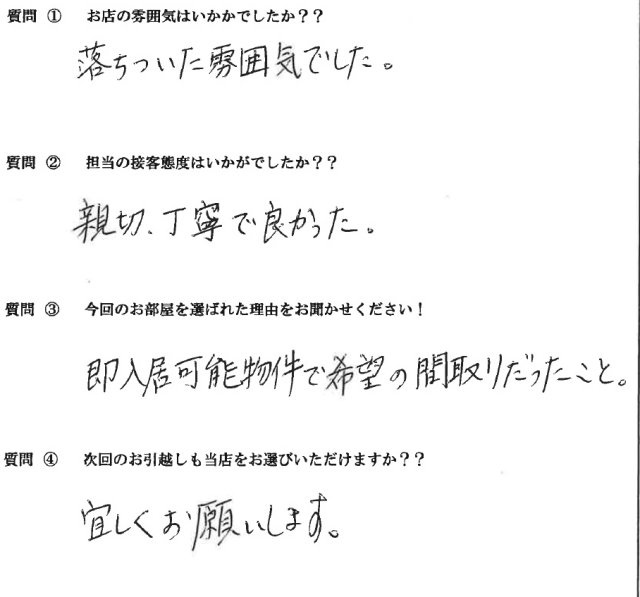 質問 ① お店の雰囲気はいかかでしたか？？
落ちついた雰囲気でした。
質問 ② 担当の接客態度はいかがでしたか？？
親切、丁寧で良かった。
質問 ③ 今回のお部屋を選ばれた理由をお聞かせください！
即入居可能物件で希望の間取りだったこと。
質問 ④ 次回のお引越しも当店をお選びいただけますか？？
宜しくお願いします。